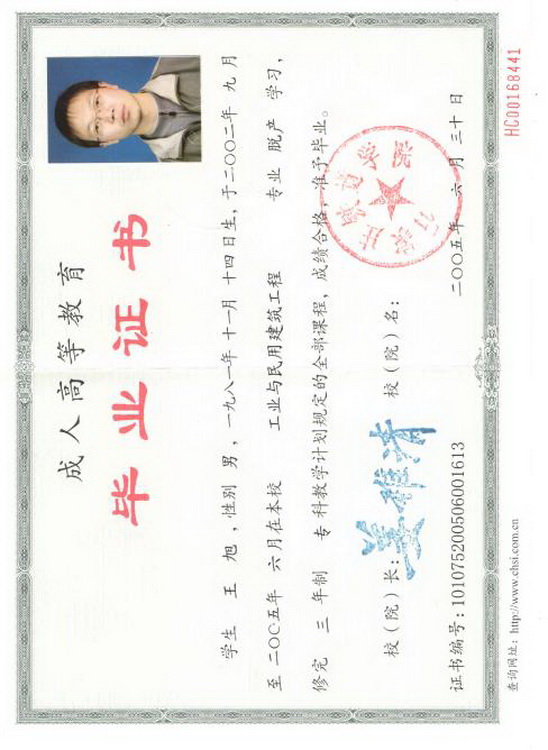 成人高等教育
毕业证书
学生 王 旭 ,性别 男 ,一九八一年 十一月 十四日生,于二〇〇二年 九 月
至 二〇〇五年 六月在本校 工业与民用建筑工程 专业 脱产 学习,
修完 三 年制 专科教学计划规定的全部课程,成绩合格,准予毕业。
校(院)长: 校(院)名:
石家庄铁道学院
二〇〇五年 六 月 三十 日
证书编号:101075200506001613
查询网址: http://www.chsi.com.cn
HC00168441